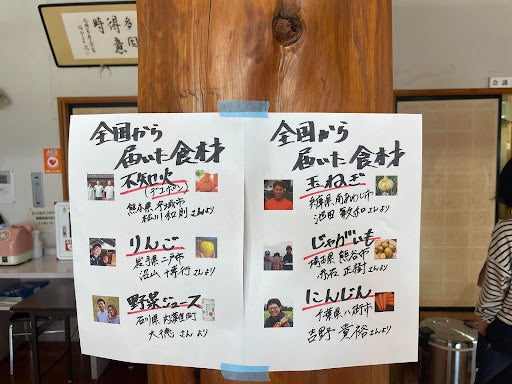 得時
意
因
AED
会議
全国から
届いた食材
不知火
(デコポン)
熊本県宇城市
さんより
りんご
岩手県二戸市
沼山
さんより
野菜ジュース
石川県内灘町
大徳さんより
全国から
届いた食材
玉ねぎ
兵庫県南あわじ市
池田
さんより
じゃがいも
埼玉県熊谷市
正樹さんより
にんじん
千葉県八街市
吉野貴裕さんより